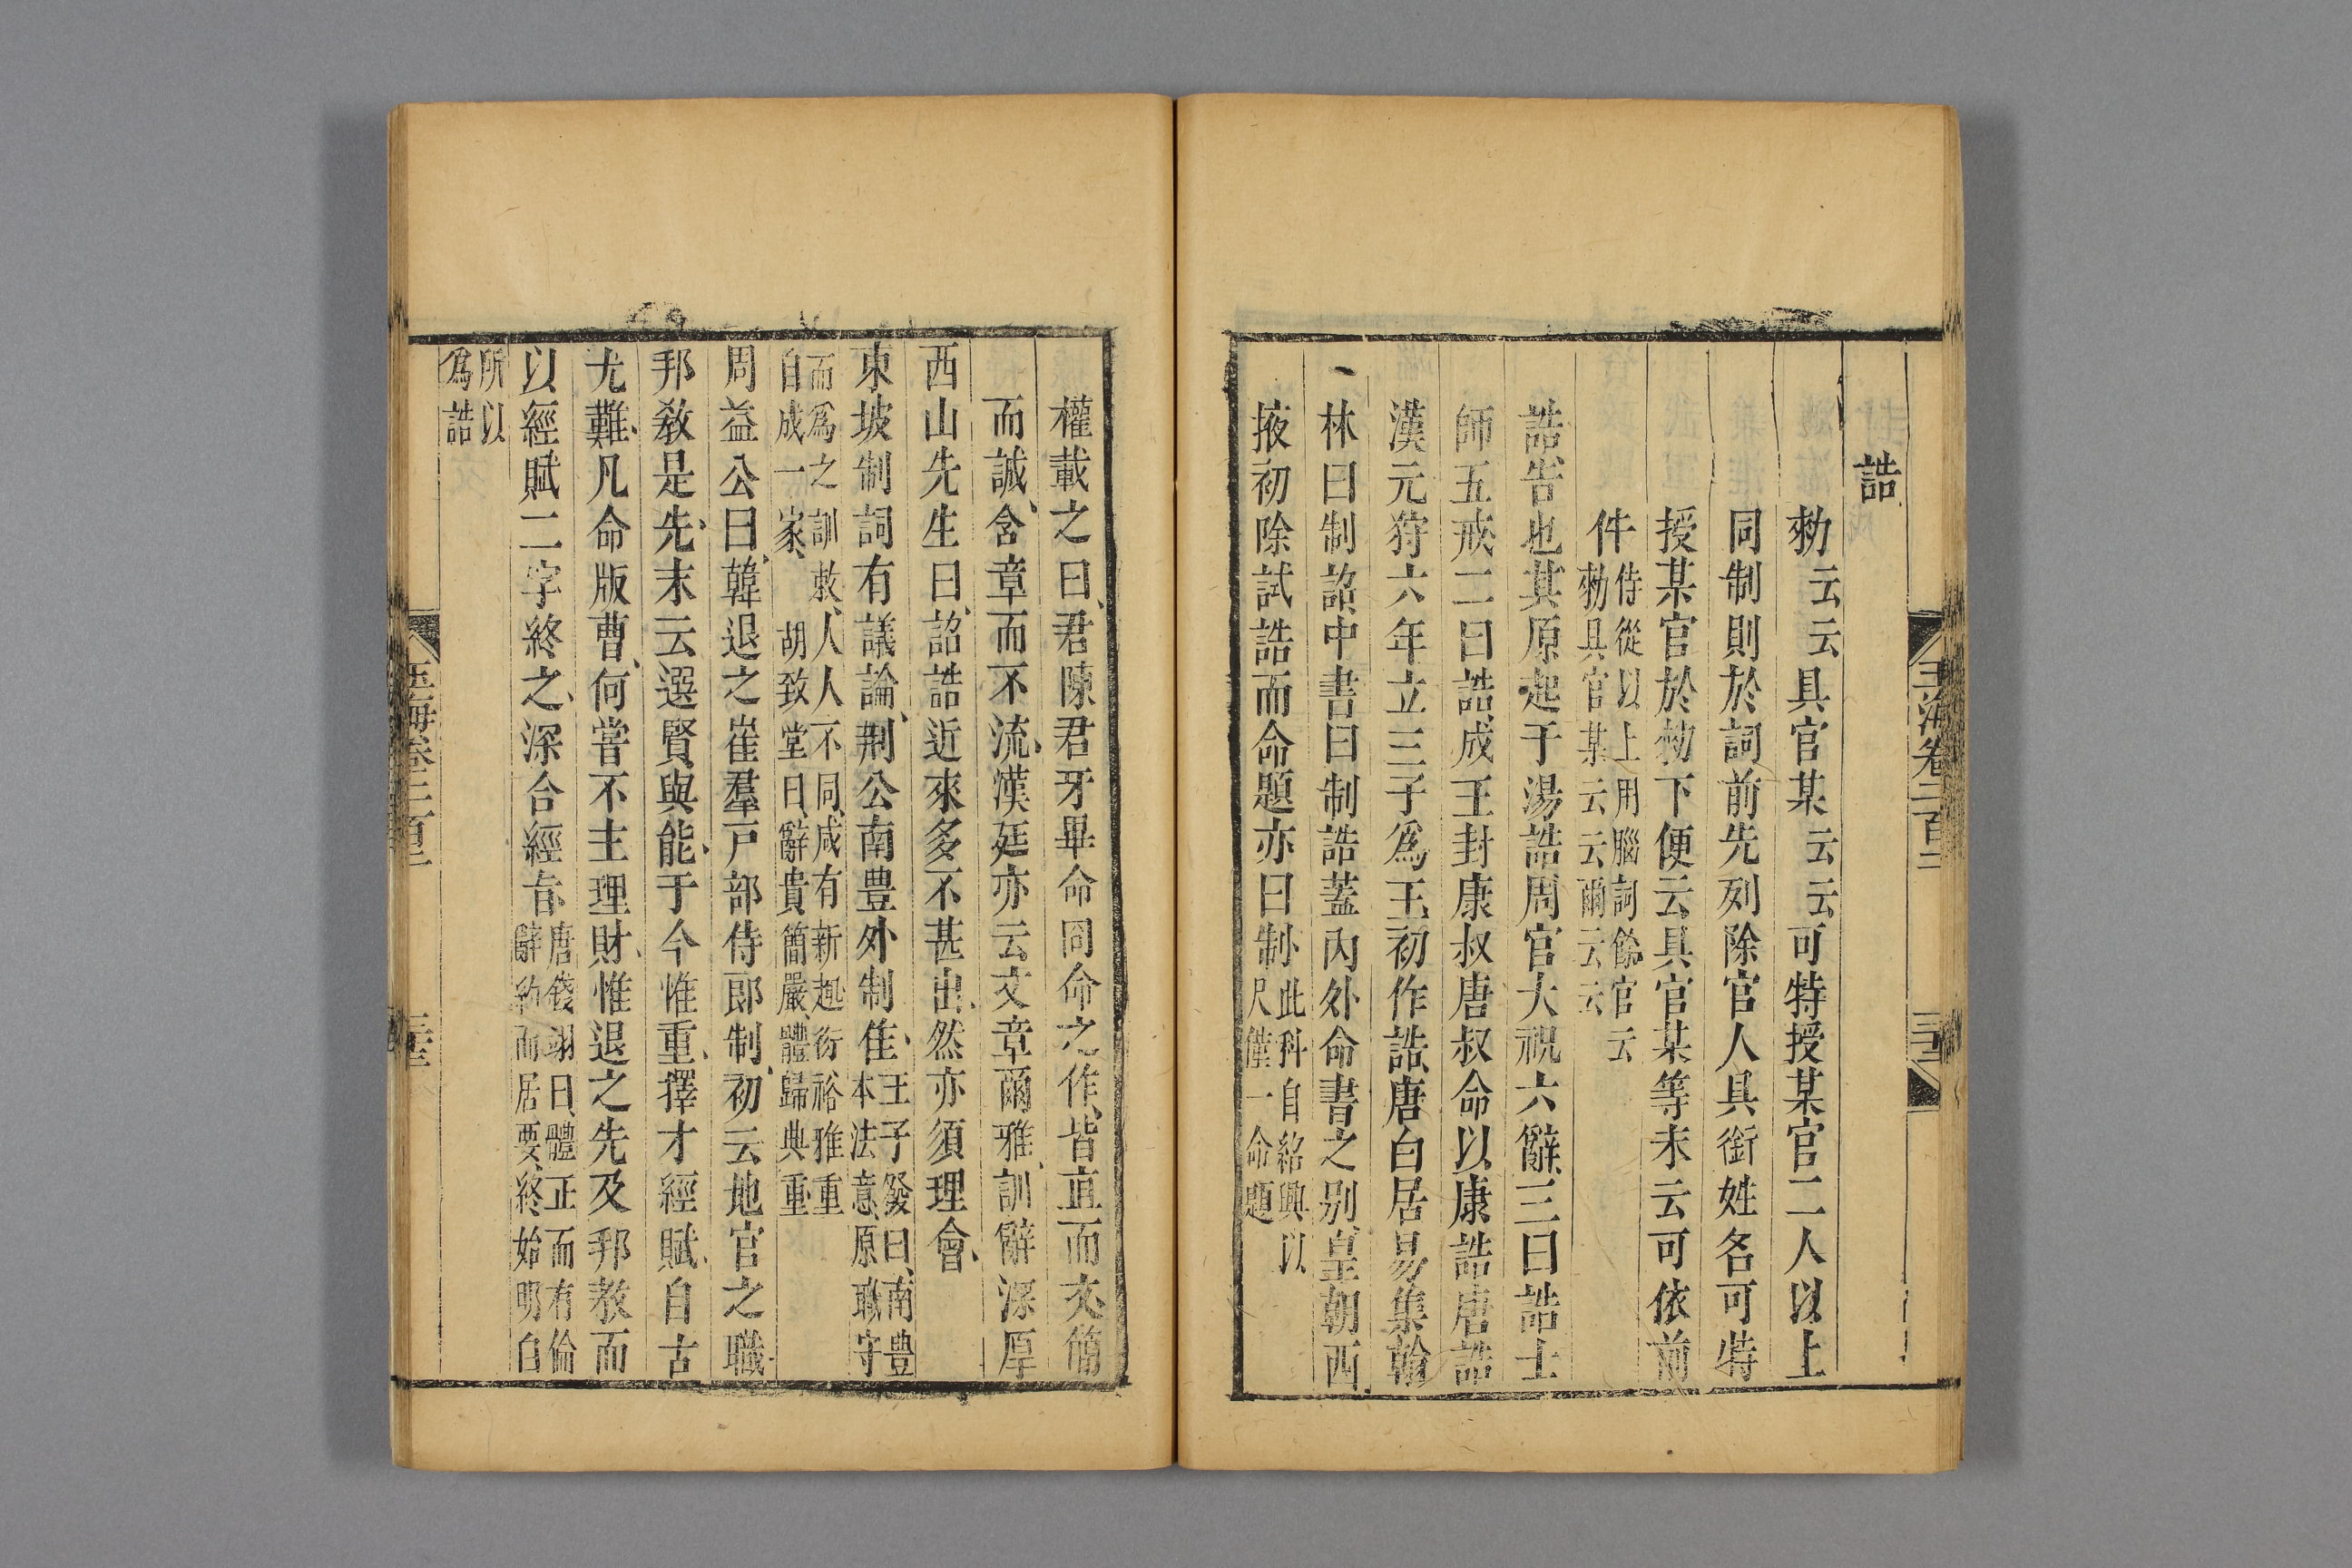 玉海卷二百二
誥
勑云云具官某云云可特授某官二人以上
同制則於詞前先列除官人具銜姓名可特
授某官於勑下便云具官某等末云可依前
件侍從以上用腦詞餘官云
勑具官某云云爾云云
誥告也其原起于湯誥周官大祝六辭三曰誥士
師五戒二曰誥成王封康叔唐叔命以康誥唐誥
漢元狩六年立三子為王初作誥唐白居易集翰
林曰制詔中書曰制誥蓋內外命書之别皇朝西
掖初除試誥而命題亦曰制此科自紹興以
尺僅一命題
權載之曰君陳君牙畢命冏命之作皆直而文簡
而誠含章而不流漢廷亦云文章爾雅訓辭深厚
西山先生曰詔誥近來多不甚出然亦須理會
東坡制詞有議論荆公南豊外制佳王子發曰南豊
本法意原職守
而為之訓敕人人不同咸有新趣衍裕雅重
自成一家　胡致堂曰辭貴簡嚴體歸典重
周益公曰韓退之崔羣戸部侍郎制初云地官之職
邦敎是先末云選賢與能于今惟重擇才經賦自古
尤難凡命版曹何嘗不主理財惟退之先及邦敎而
以經賦二字終之深合經旨唐錢翊曰體正而有倫
辭約而居要終始明白
所以
為誥
玉海卷二百二